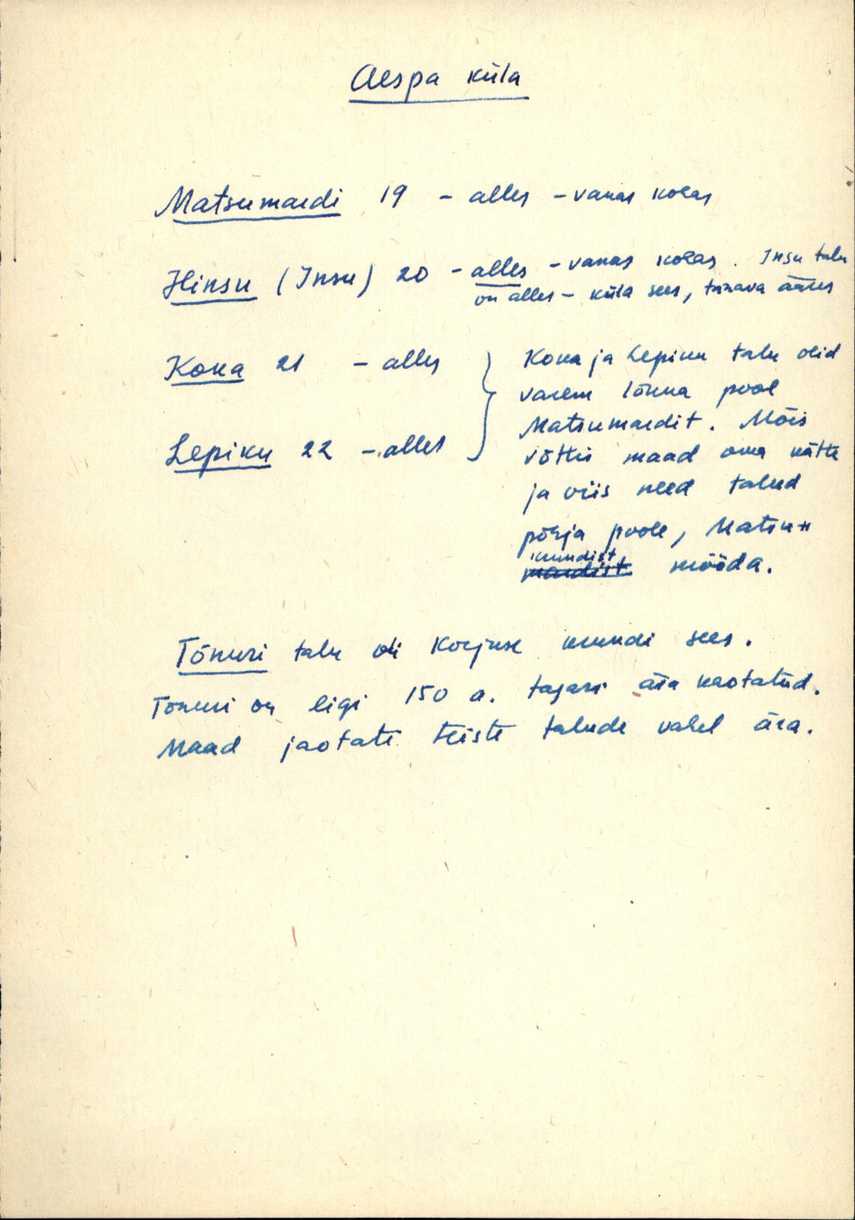 Aespa küla
Matsumardi 19 - alles - vanas kohas
Hinsu (Insu) 20 - alles - vanas kohas. Insu talu
on alles - küla sees, tänava ääres
Kona 21 - alles
Lepiku 22 - alles
Kona ja Lepiku talu olid
varem lõuna pool
Matsumardit. Mõis
võttis maad oma kätte
ja viis need talud
põhja poole, Matsu-
mardist mööda.
Tõnuri talu oli Korjuse kundi sees.
Tõnuri on ligi 150 a. tagasi ära kaotatud.
Maad jaotati teiste talude vahel ära.